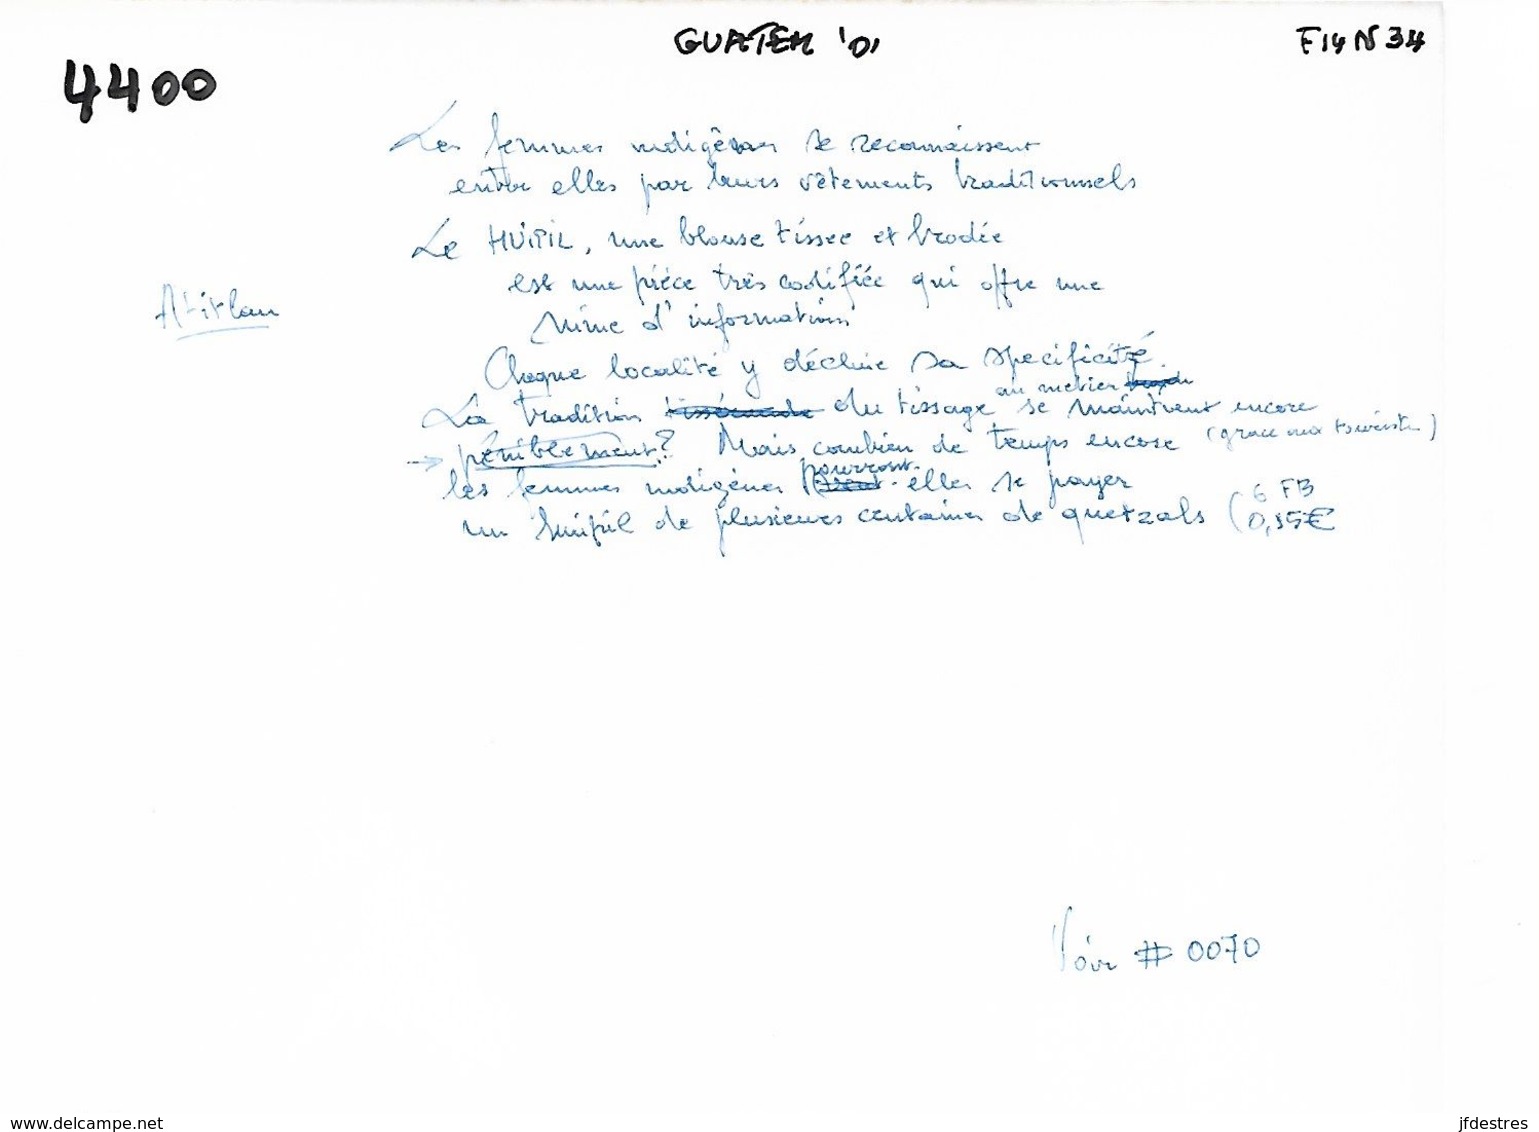 GUATEM '01
F14 N 34
4400
Les femmes indigènes se reconnaissent
entre elles par leurs vêtements traditionnels
Le HUIPIL, une blouse tissée et brodée
est une pièce très codifiée qui offre une
mine d'informations
Atitlan
Chaque localité y décline sa spécificité.
au métier
La tradition du tissage se maintient encore
péniblement? Mais combien de temps encore (grace aux touristes)
les femmes indigènes pourront-elles se payer
un huipil de plusieurs centaines de quetzals (6 FB
0,15€
Voir # 0070
www.delcampe.net
jfdestres